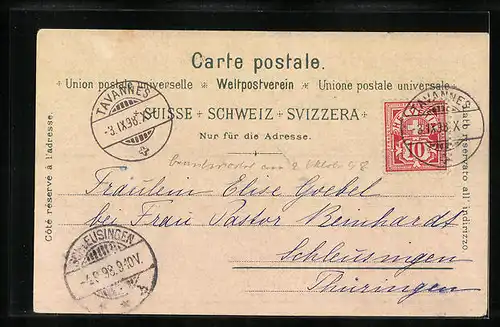 Carte postale.
Union postale universelle ✳ Weltpostverein ✳ Unione postale universale
SUISSE + SCHWEIZ + SVIZZERA
Nur für die Adresse.
Côté réservé à l'adresse.
Lato riservato all' indirizzo
TAVANNES
-3.IX.98.X
TAVANNES
-3.IX.98.X
10
beantwortet am 2 Oktober 98
Fräulein Elise Goebel
bei Frau Pastor Bernhardt
Schleusingen
Thüringen
SCHLEUSINGEN
-4.9.98.9-10V.